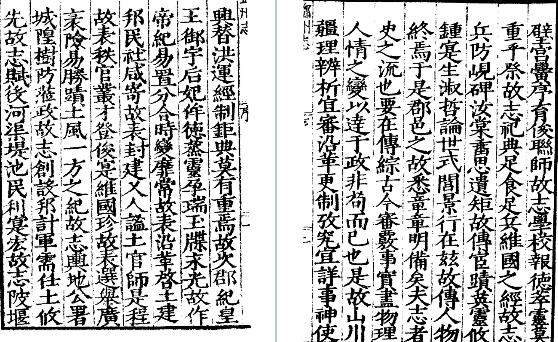 興替洪運經制鉅典莫有重焉故次郡紀皇
王御宇后妃作德蒸靈孕瑞玉牒末光故作
帝紀易置分合時變靡常故表沿革啓土建
邦民社咸寄故表封建乂人謐土官師是程
故表秩官叢才登俊寔維國珍故表選舉廣
袤險易勝蹟土風一方之紀故志輿地公署
城隍樹防蒞政故志創設邦計軍需任土攸
先故志賦役河渠堤池民利寔宏故志陂堰
璧宮黌序育俊聯師故志學校報德萃靈莫
重乎祭故志祀典足食足兵維國之經故志
兵防峴碑汝棠耆思遺矩故傳官蹟英靈攸
鍾寔生淑哲論世式閭景行在玆故傳人物
終焉于是郡邑之故悉章章明備矣夫志者
史之流也要在傳綜古今審覈事實盡物理
人情之變以達于政非苟而已也是故山川
疆理辨析宜審沿革更制攷究宜詳事神使